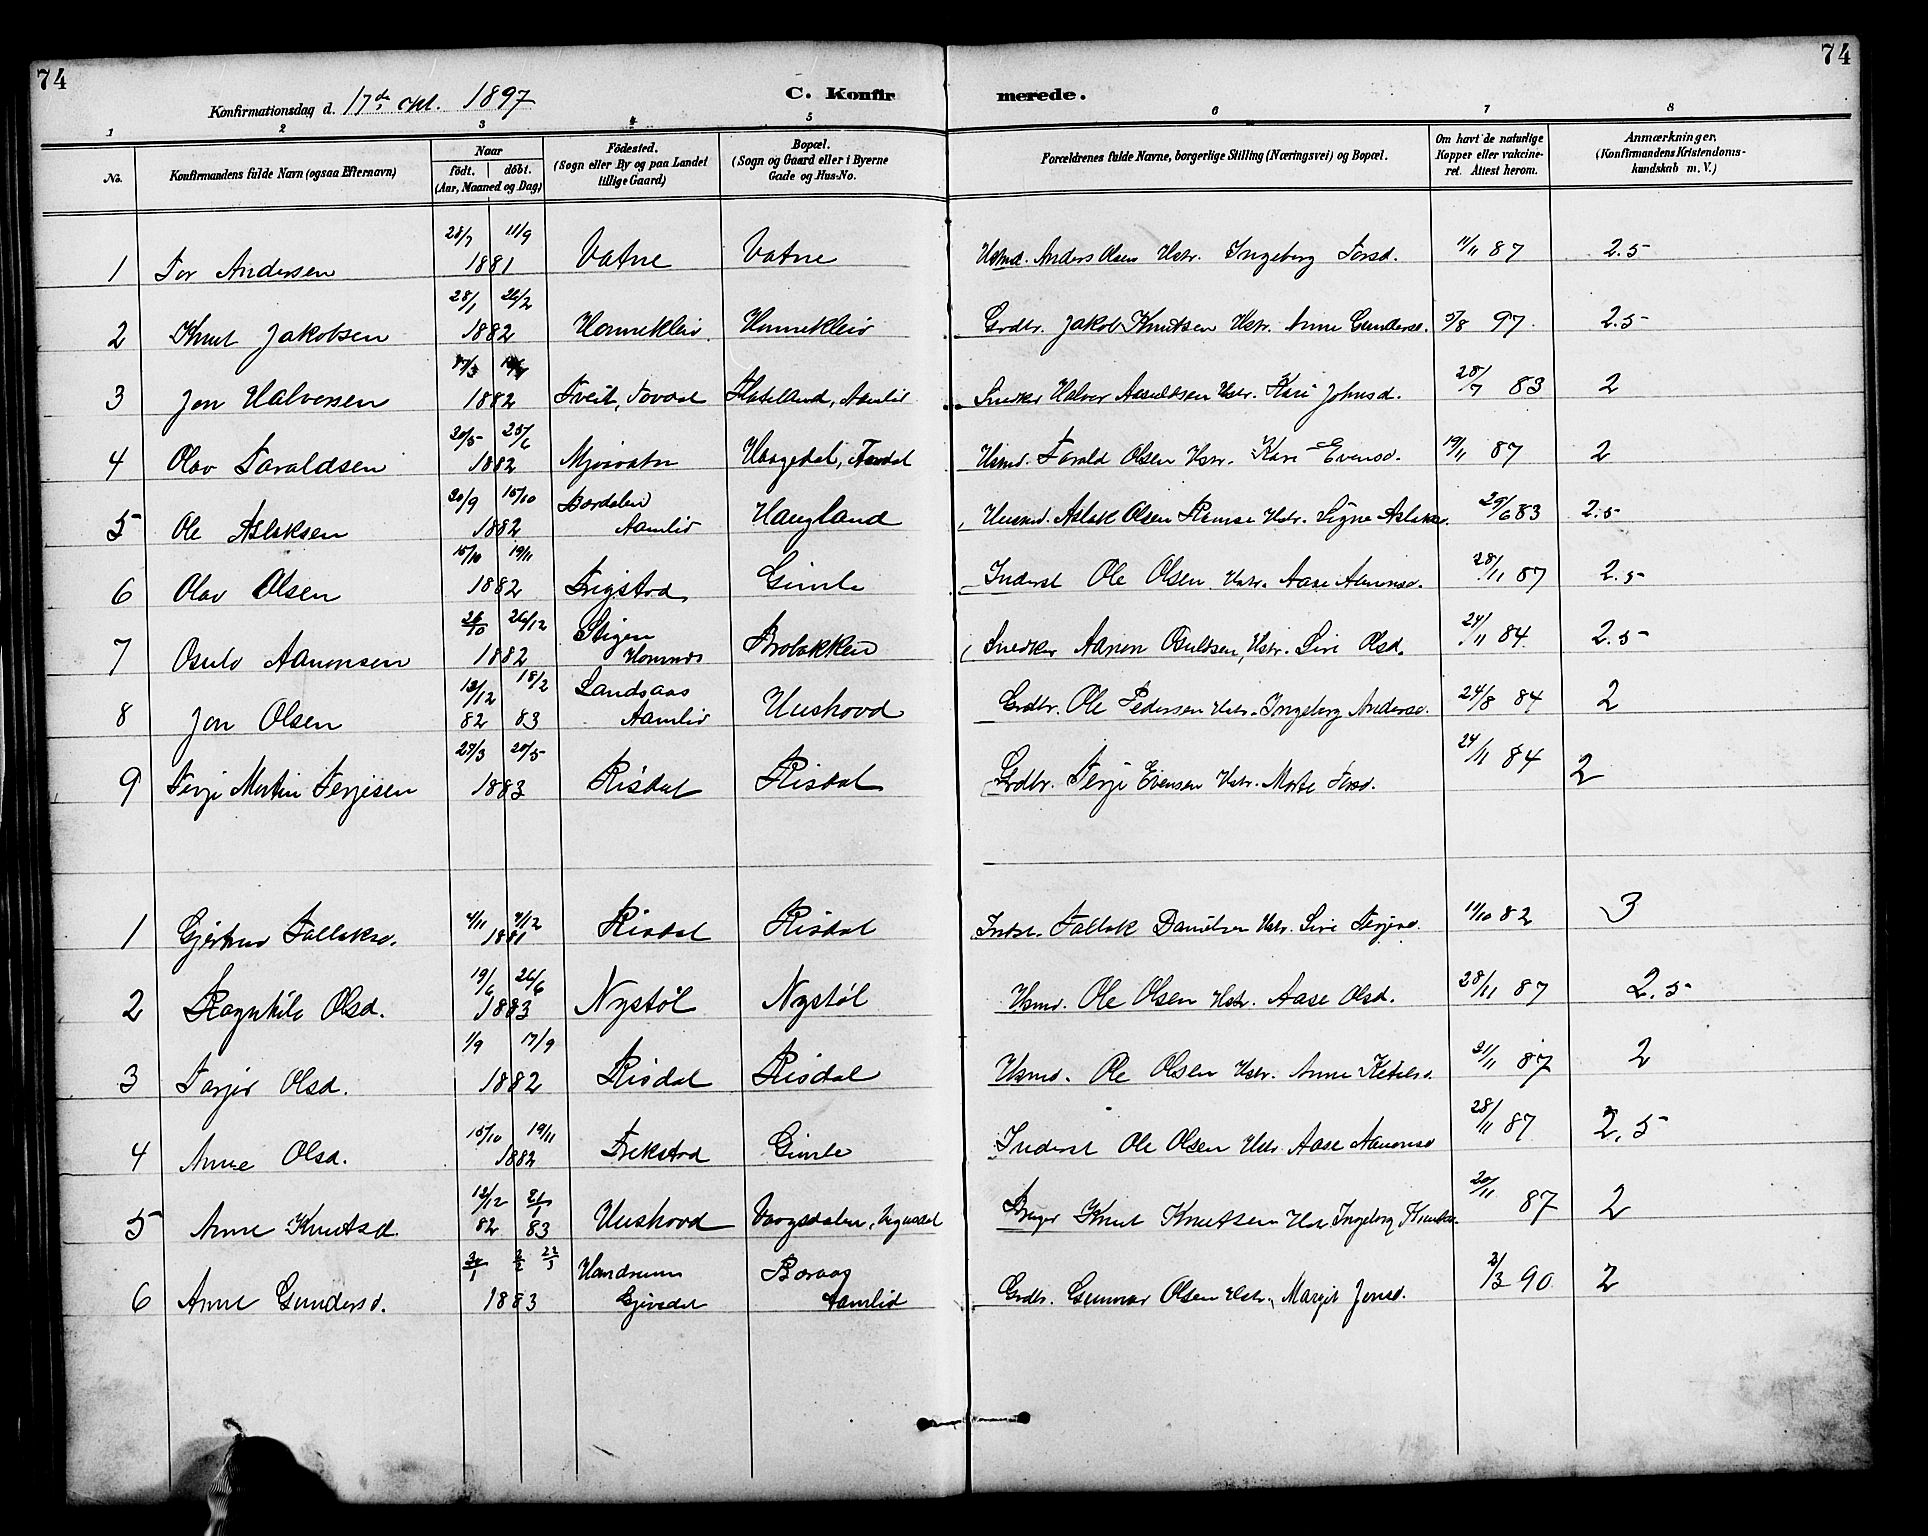 74
74
Konfirmationsdag d. 17de okt. 1897
C. Konfirmerede.
1 2 3 4 5 6 7 8
No.
Konfirmandens fulde Navn (ogsaa Efternavn)
Naar
födt. döbt.
(Aar, Maaned og Dag)
Födested.
(Sogn eller By og paa Landet tillige Gaard)
Bopæl.
(Sogn og Gaard eller i Byerne Gade og Hus-No.
Forældrenes fulde Navne, borgerlige Stilling (Næringsvei) og Bopæl.
Om havt de naturlige Kopper eller vakcineret. Attest herom.
Anmærkninger,
(Konfirmandens Kristendomskundskab m. V.)
1 Tor Andersen 28/7 11/9 1881 Vatne Vatne Usmd. Anders Olsen Hstr. Ingeborg Torsd. 11/11 87 2.5
2 Knut Jakobsen 28/1 26/2 1882 Honnekleiv Honnekleiv Grdbr. Jakob Knutsen Hstr. Anne Gundersd. 5/8 97 2.5
3 Jon Halvorsen 17/3 1882 Tveit, Tovdal Flateland, Aamlid Snedker Halvor Aasuldsen Hstr. Kari Johnsd. 28/7 83 2
4 Olav Taraldsen 20/5 25/6 1882 Mjaavatn Haugedal, Tovdal Husmd. Tarald Olsen Hstr. Kari Evensd. 19/11 87 2
5 Ole Aslaksen 20/9 15/10 1882 Bordalen Aamlid Haugland Husmd. Aslak Olsen Ramse Hstr. Signe Aslaksd. 29/6 83 2.5
6 Olav Olsen 15/10 19/11 1882 Trigstad Gimle Inderst Ole Olsen Hstr. Aase Aanonsd. 28/11 87 2.5
7 Osuld Aanonsen 26/10 26/12 1882 Stigen Hornnes Brobakken Snedker Aanon Osuldsen, Hstr. Siri Olsd. 24/11 84 2.5
8 Jon Olsen 12/12 82 18/2 83 Landsaas Aamlid Uushovd Grdbr. Ole Pedersen Hstr. Ingeborg Andersd. 24/8 84 2
9 Terje Martin Terjesen 27/3 20/5 1883 Risdal Risdal Grdbr. Terje Evensen Hstr. Marte Torsd. 24/11 84 2
1 Gjertrud Tallaksd. 4/11 4/12 1881 Risdal Risdal Indst. Tallak Danielsen Hstr. Siri Terjesd. 11/10 82 3
2 Ragnhild Olsd. 19/6 26/6 1883 Nystöl Nystöl Usmd. Ole Olsen Hstr. Aase Olsd. 28/11 87 2.5
3 Tarjer Olsd. 1/9 17/9 1882 Risdal Risdal Usmd. Ole Olsen Hstr. Anne Ketilsd. 21/11 87 2
4 Anne Olsd. 15/10 19/11 1882 Trekstad Gimle Inderst Ole Olsen Hstr. Aase Aanonsd 28/11 87 2.5
5 Anne Knutsd. 12/12 82 21/1 83 Uushovd Vaagsdalen, Vegusdal Bruger Knut Knutsen Hstr Ingeborg Knutsd. 20/11 87 2
6 Anne Gundersd. 30/1 1883 Gjövdal Boraas Aamlid Grdbr. Gunnar Olsen Hstr. Margit Jonsd. 2/3 90 2